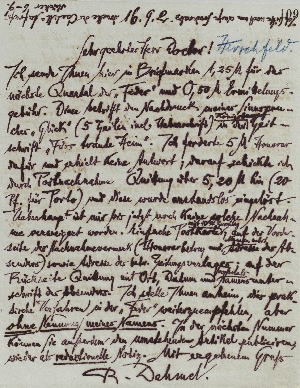 16. 9. 2.
Sehr geehrter Herr Doctor! Hirschfeld.
Ich sende Ihnen hier in Briefmarken 1,25 M für das
nächste Quartal der "Feder" und 0,50 M Ermittelungs-
gebühr. Diese betrifft den Nachdruck meiner
(5 Zeilen incl. Ueberschrift) in der Zeit-
schrift "Fürs traute Heim". Ich forderte 5 M Honorar
dafür und erhielt keine Antwort; darauf schickte ich
durch Postnachnahme Quittung über 5,20 M hin (20
Pf. für Porto) und diese wurde anstandslos eingelöst.
Ueberhaupt ist mir bis jetzt noch keine solche Nachnah-
me verweigert worden. Einfache Postkarte, auf der Vorder-
seite der Nachnahmevermerk (Honorarbetrag und Adresse des Ab-
senders) sowie Adresse des betr. Zeitungsverlages; auf der
Rückseite Quittung mit Ort, Datum und Namensunter-
schrift des Absenders. Ich stelle Ihnen anheim, dies prak-
tische Verfahren in der "Feder" weiterzuempfehlen, aber
ohne Nennung meines Namens. In der nächsten Nummer
können Sie ausserdem den umstehenden Artikel publiciren
wieder als redactionelle Notiz. Mit ergebenem Gruß
R. Dehmel.